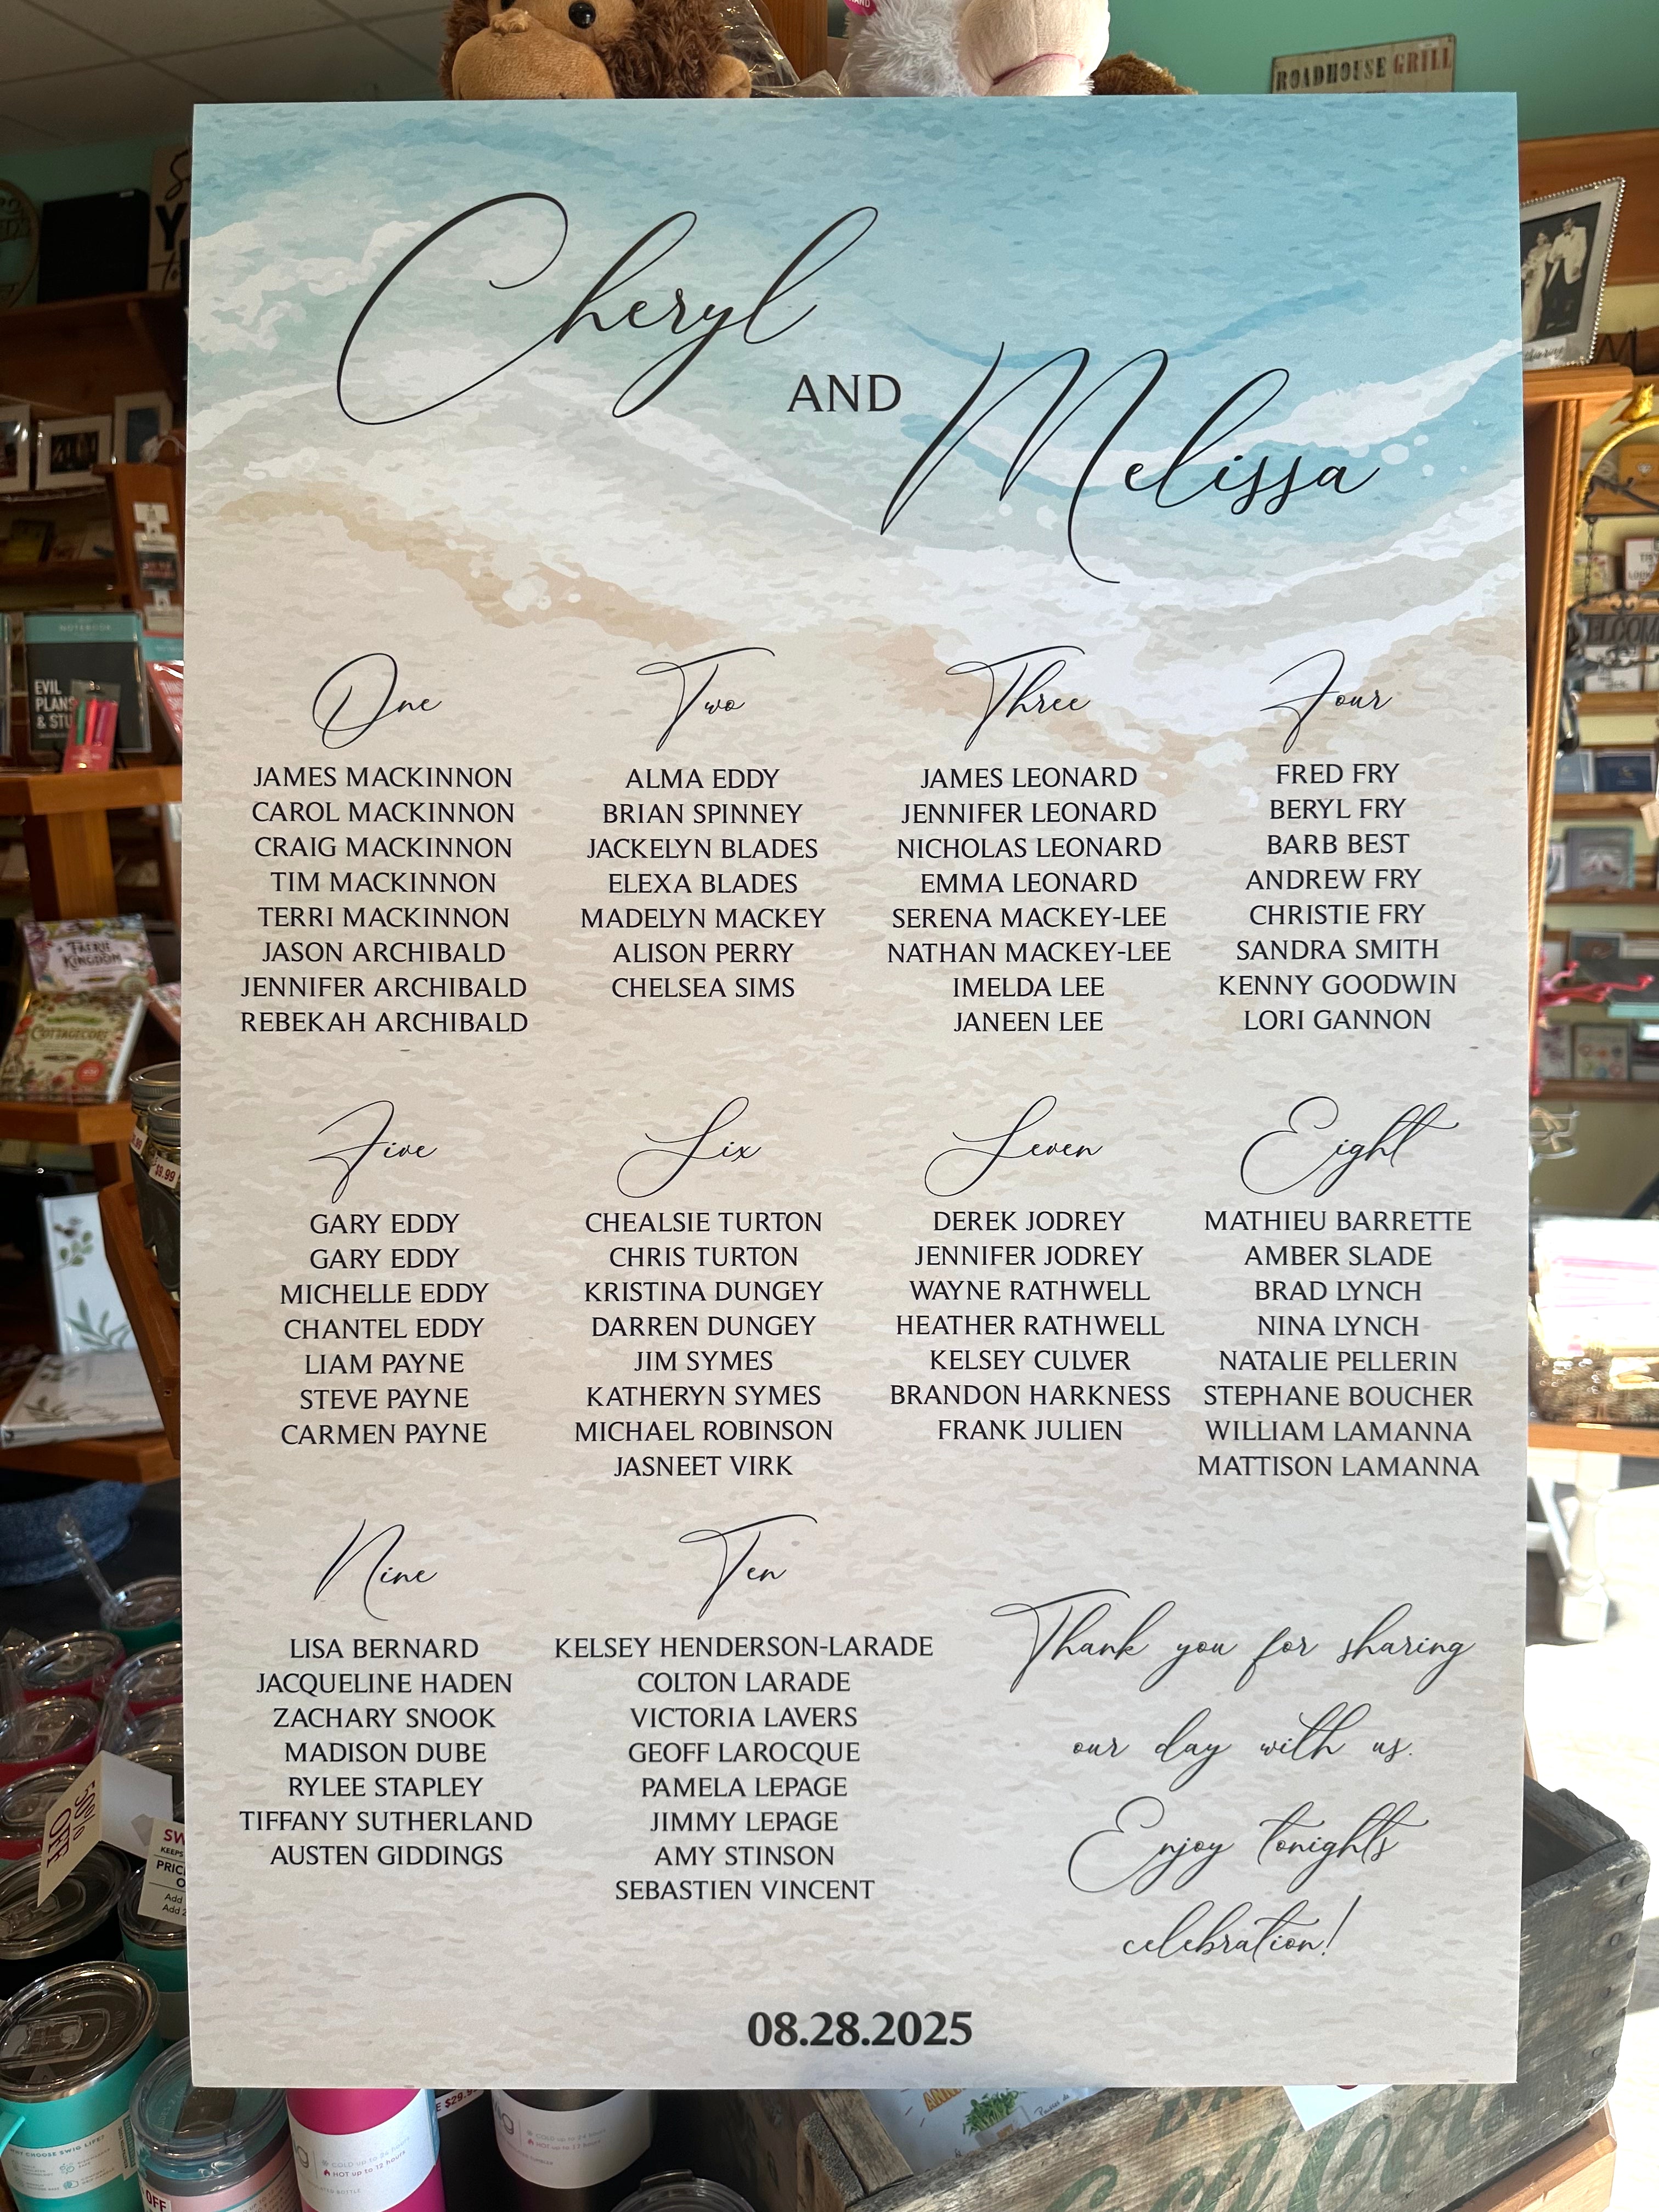 ROADHOUSE GRILL
Cheryl
AND
Melissa
One
JAMES MACKINNON
CAROL MACKINNON
CRAIG MACKINNON
TIM MACKINNON
TERRI MACKINNON
JASON ARCHIBALD
JENNIFER ARCHIBALD
REBEKAH ARCHIBALD
Two
ALMA EDDY
BRIAN SPINNEY
JACKELYN BLADES
ELEXA BLADES
MADELYN MACKEY
ALISON PERRY
CHELSEA SIMS
Three
JAMES LEONARD
JENNIFER LEONARD
NICHOLAS LEONARD
EMMA LEONARD
SERENA MACKEY-LEE
NATHAN MACKEY-LEE
IMELDA LEE
JANEEN LEE
Four
FRED FRY
BERYL FRY
BARB BEST
ANDREW FRY
CHRISTIE FRY
SANDRA SMITH
KENNY GOODWIN
LORI GANNON
Five
GARY EDDY
GARY EDDY
MICHELLE EDDY
CHANTEL EDDY
LIAM PAYNE
STEVE PAYNE
CARMEN PAYNE
Six
CHEALSIE TURTON
CHRIS TURTON
KRISTINA DUNGEY
DARREN DUNGEY
JIM SYMES
KATHERYN SYMES
MICHAEL ROBINSON
JASNEET VIRK
Seven
DEREK JODREY
JENNIFER JODREY
WAYNE RATHWELL
HEATHER RATHWELL
KELSEY CULVER
BRANDON HARKNESS
FRANK JULIEN
Eight
MATHIEU BARRETTE
AMBER SLADE
BRAD LYNCH
NINA LYNCH
NATALIE PELLERIN
STEPHANE BOUCHER
WILLIAM LAMANNA
MATTISON LAMANNA
Nine
LISA BERNARD
JACQUELINE HADEN
ZACHARY SNOOK
MADISON DUBE
RYLEE STAPLEY
TIFFANY SUTHERLAND
AUSTEN GIDDINGS
Ten
KELSEY HENDERSON-LARADE
COLTON LARADE
VICTORIA LAVERS
GEOFF LAROCQUE
PAMELA LEPAGE
JIMMY LEPAGE
AMY STINSON
SEBASTIEN VINCENT
Thank you for sharing
our day with us.
Enjoy tonights
celebration!
08.28.2025
NOTEBOOK
EVIL
PLANS
& STU
FAERIE
KINGDOM
COTTAGECORE
$9.99
50%
OFF
COLD up to 24 hours
HOT up to 12 hours
OFF